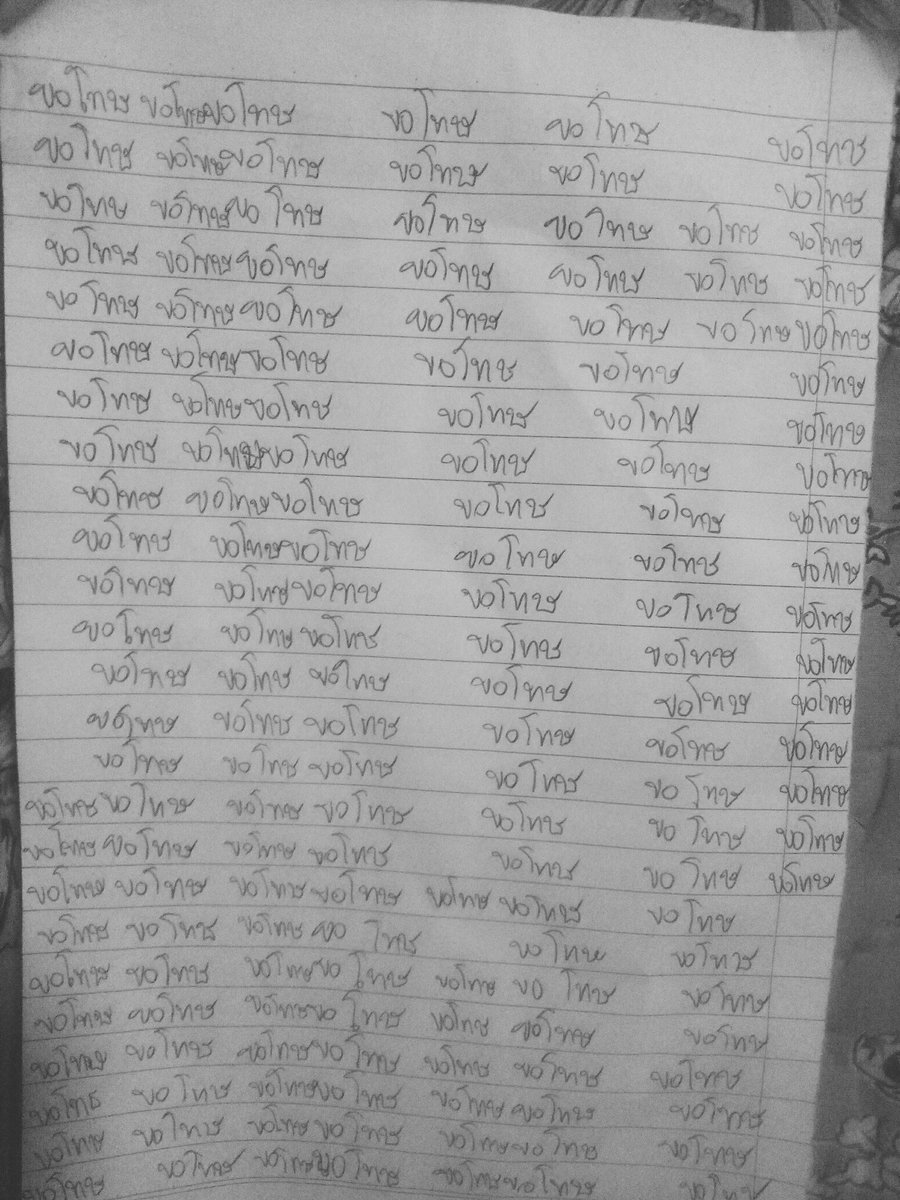 ขอโทษ ขอโทษ ขอโทษ ขอโทษ ขอโทษ ขอโทษ
ขอโทษ ขอโทษ ขอโทษ ขอโทษ ขอโทษ ขอโทษ
ขอโทษ ขอโทษ ขอโทษ ขอโทษ ขอโทษ ขอโทษ ขอโทษ
ขอโทษ ขอโทษ ขอโทษ ขอโทษ ขอโทษ ขอโทษ ขอโทษ
ขอโทษ ขอโทษ ขอโทษ ขอโทษ ขอโทษ ขอโทษ ขอโทษ
ขอโทษ ขอโทษ ขอโทษ ขอโทษ ขอโทษ ขอโทษ
ขอโทษ ขอโทษ ขอโทษ ขอโทษ ขอโทษ ขอโทษ
ขอโทษ ขอโทษ ขอโทษ ขอโทษ ขอโทษ ขอโทษ
ขอโทษ ขอโทษ ขอโทษ ขอโทษ ขอโทษ ขอโทษ
ขอโทษ ขอโทษ ขอโทษ ขอโทษ ขอโทษ ขอโทษ
ขอโทษ ขอโทษ ขอโทษ ขอโทษ ขอโทษ ขอโทษ
ขอโทษ ขอโทษ ขอโทษ ขอโทษ ขอโทษ ขอโทษ
ขอโทษ ขอโทษ ขอโทษ ขอโทษ ขอโทษ ขอโทษ
ขอโทษ ขอโทษ ขอโทษ ขอโทษ ขอโทษ ขอโทษ
ขอโทษ ขอโทษ ขอโทษ ขอโทษ ขอโทษ ขอโทษ
ขอโทษ ขอโทษ ขอโทษ ขอโทษ ขอโทษ ขอโทษ ขอโทษ
ขอโทษ ขอโทษ ขอโทษ ขอโทษ ขอโทษ ขอโทษ ขอโทษ
ขอโทษ ขอโทษ ขอโทษ ขอโทษ ขอโทษ ขอโทษ ขอโทษ
ขอโทษ ขอโทษ ขอโทษ ขอโทษ ขอโทษ ขอโทษ
ขอโทษ ขอโทษ ขอโทษ ขอโทษ ขอโทษ ขอโทษ ขอโทษ
ขอโทษ ขอโทษ ขอโทษ ขอโทษ ขอโทษ ขอโทษ ขอโทษ
ขอโทษ ขอโทษ ขอโทษ ขอโทษ ขอโทษ ขอโทษ ขอโทษ
ขอโทษ ขอโทษ ขอโทษ ขอโทษ ขอโทษ ขอโทษ ขอโทษ
ขอโทษ ขอโทษ ขอโทษ ขอโทษ ขอโทษ ขอโทษ ขอโทษ
ขอโทษ ขอโทษ ขอโทษ ขอโทษ ขอโทษ ขอโทษ ขอโทษ